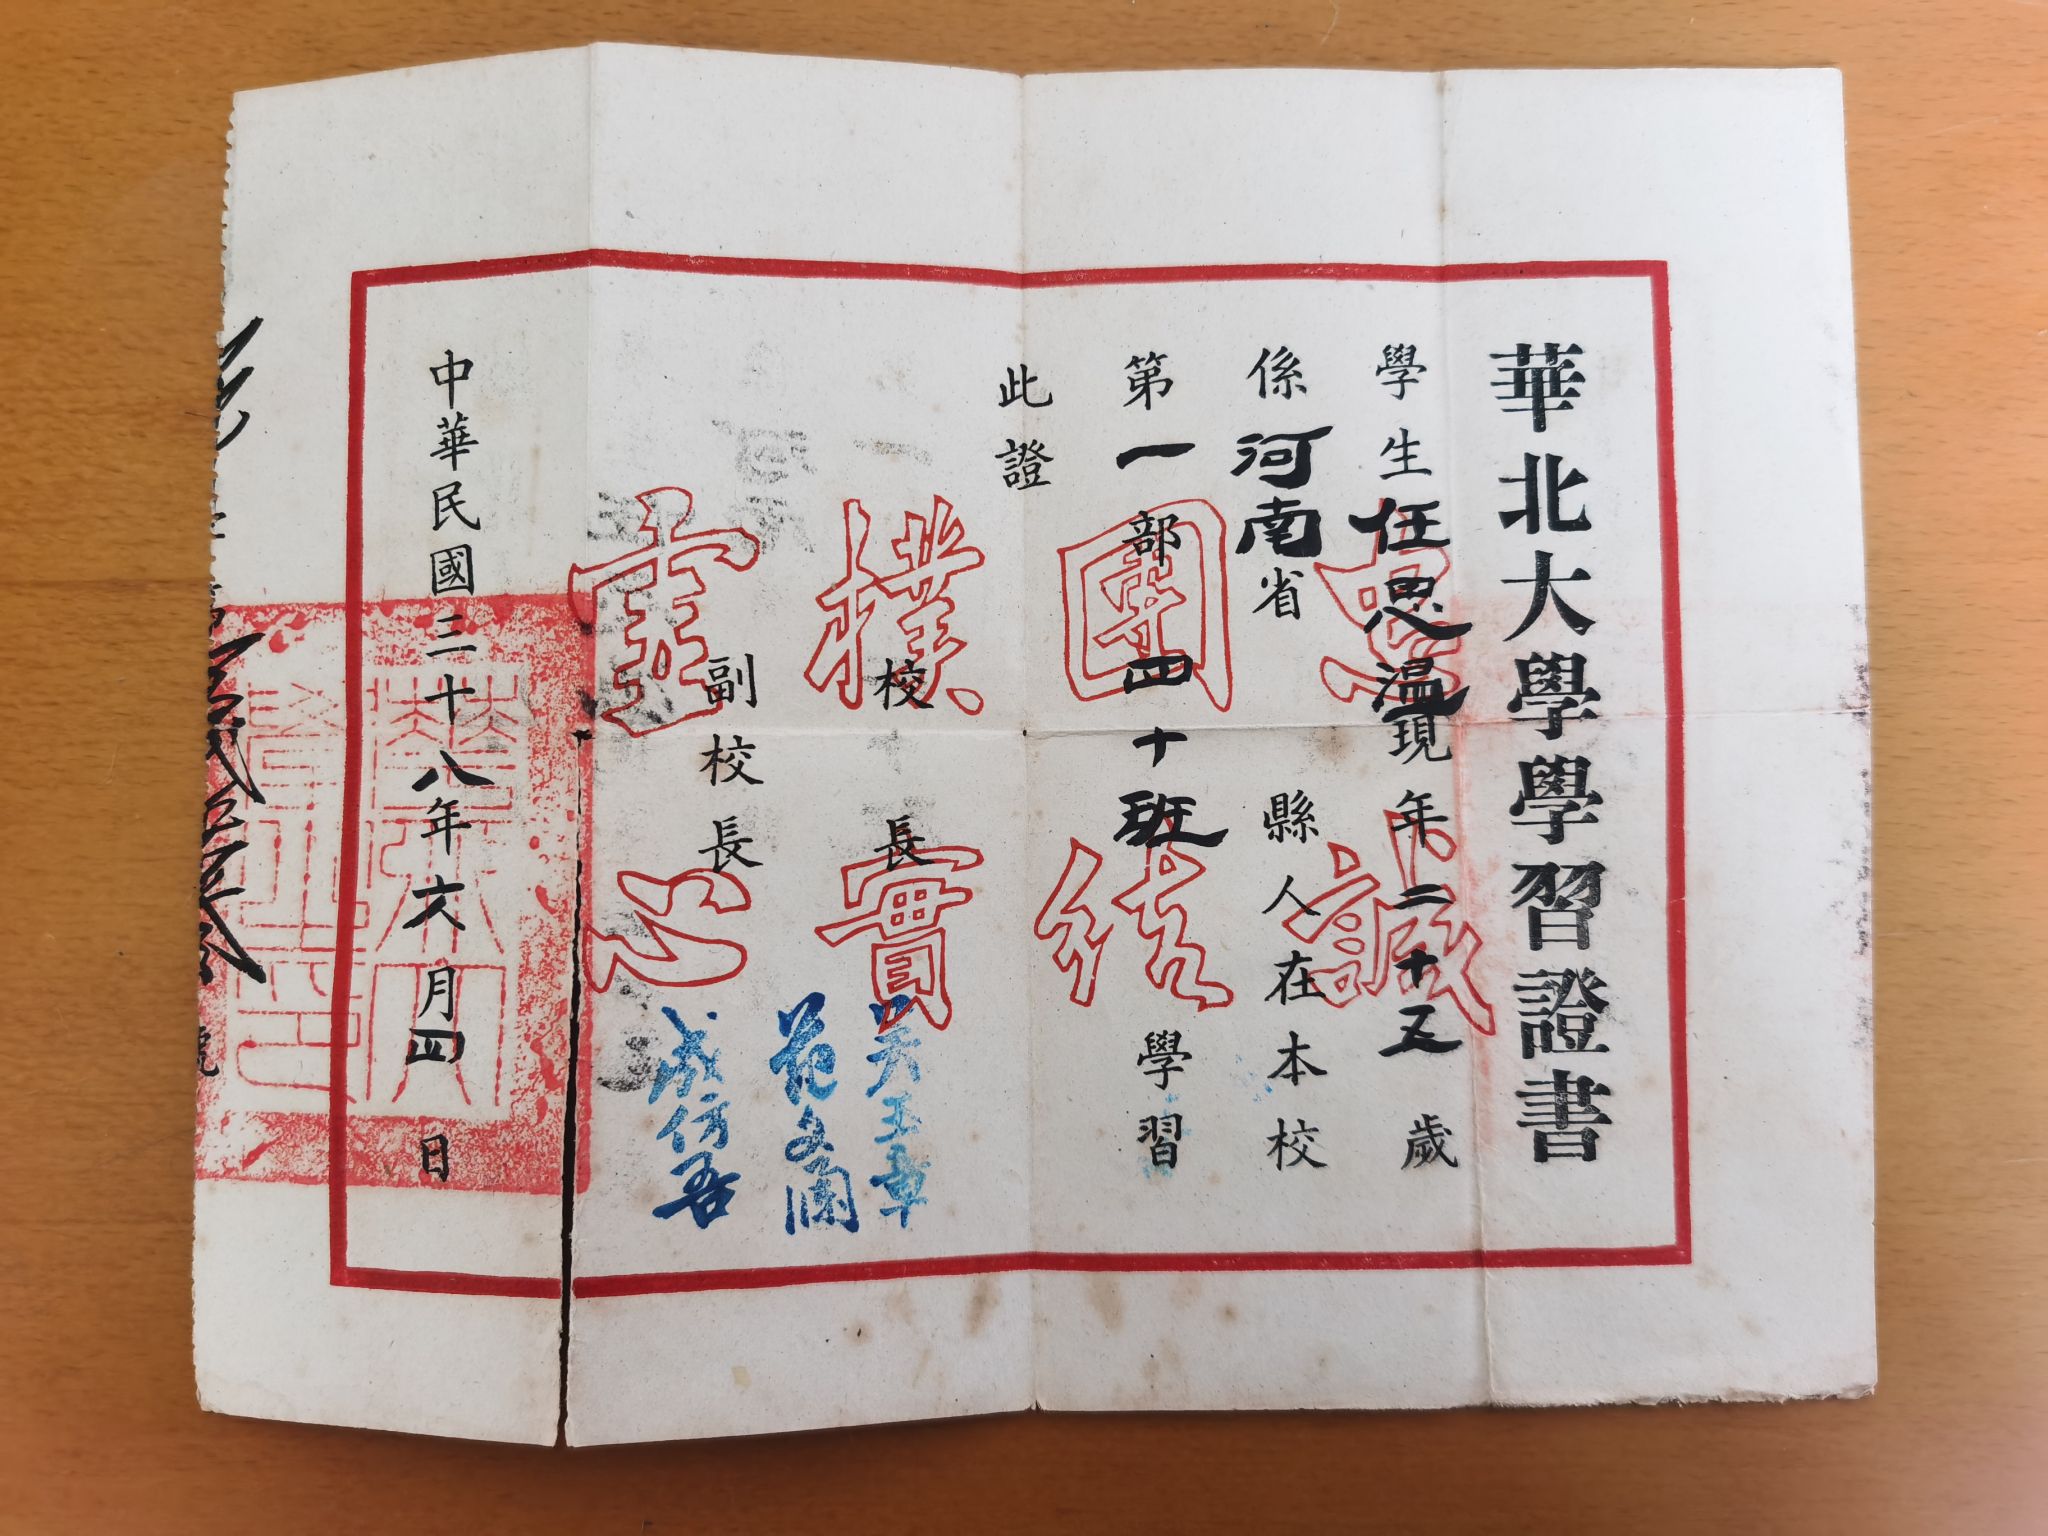 華北大學學習證書
學生任思温現年二十五歲
係河南省 縣人在本校
第一部四十班學習
此證
忠誠
團結
樸實
虛心
校長 吳玉章
副校長 范文瀾
成仿吾
中華民國三十八年六月四日
華北大學